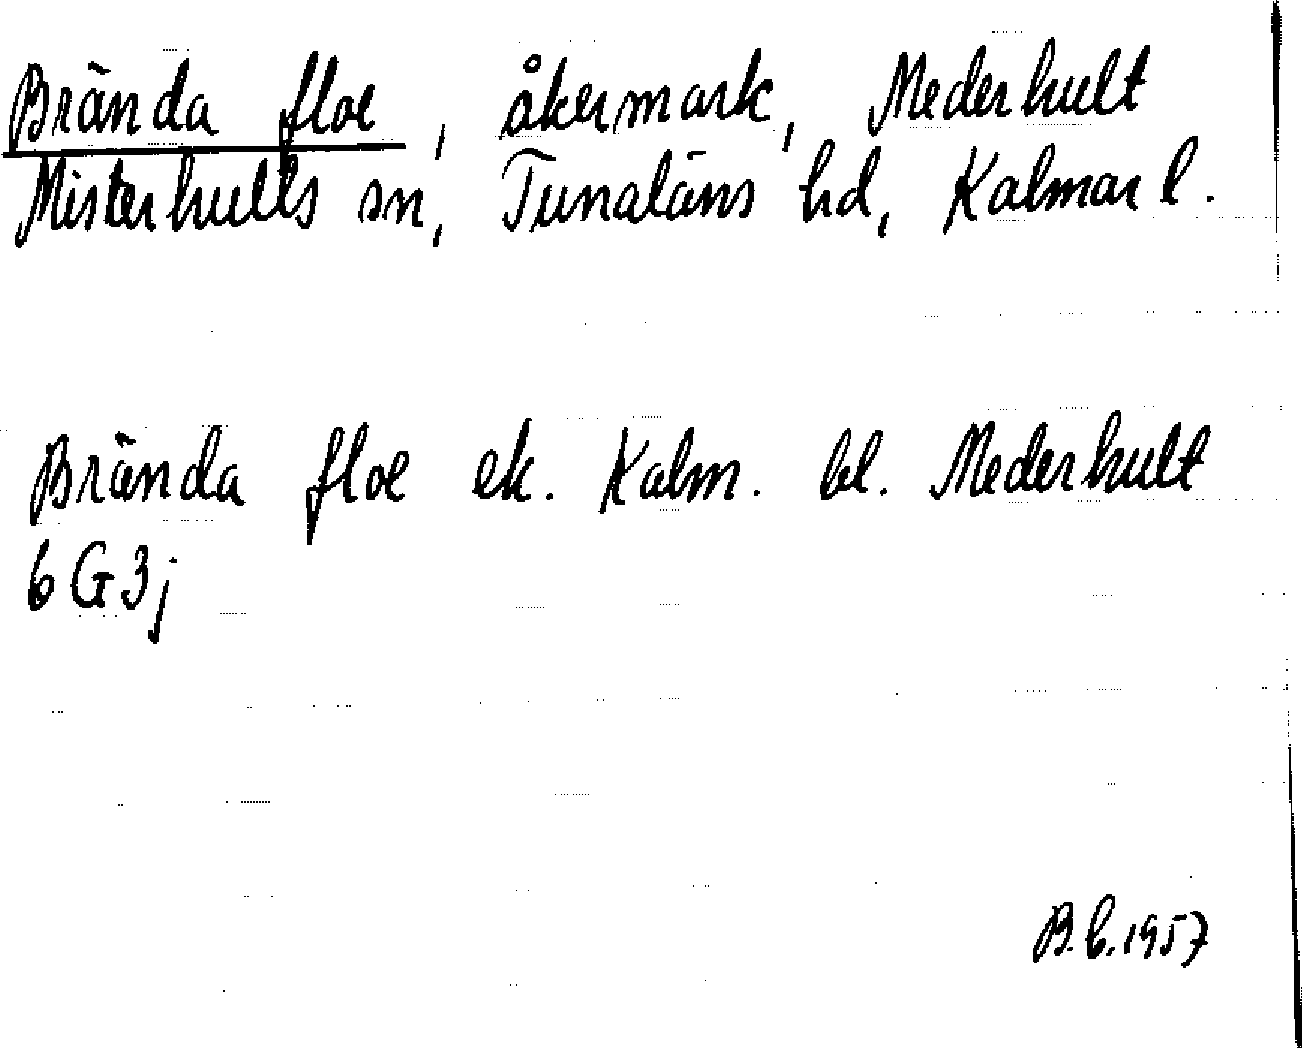 Brända floe, åkermark, Mederhult
Misterhults sn, Tunaläns hd, Kalmar l.
Brända floe ek. Kalm. bl. Mederhult
6G3j
B.b.1957